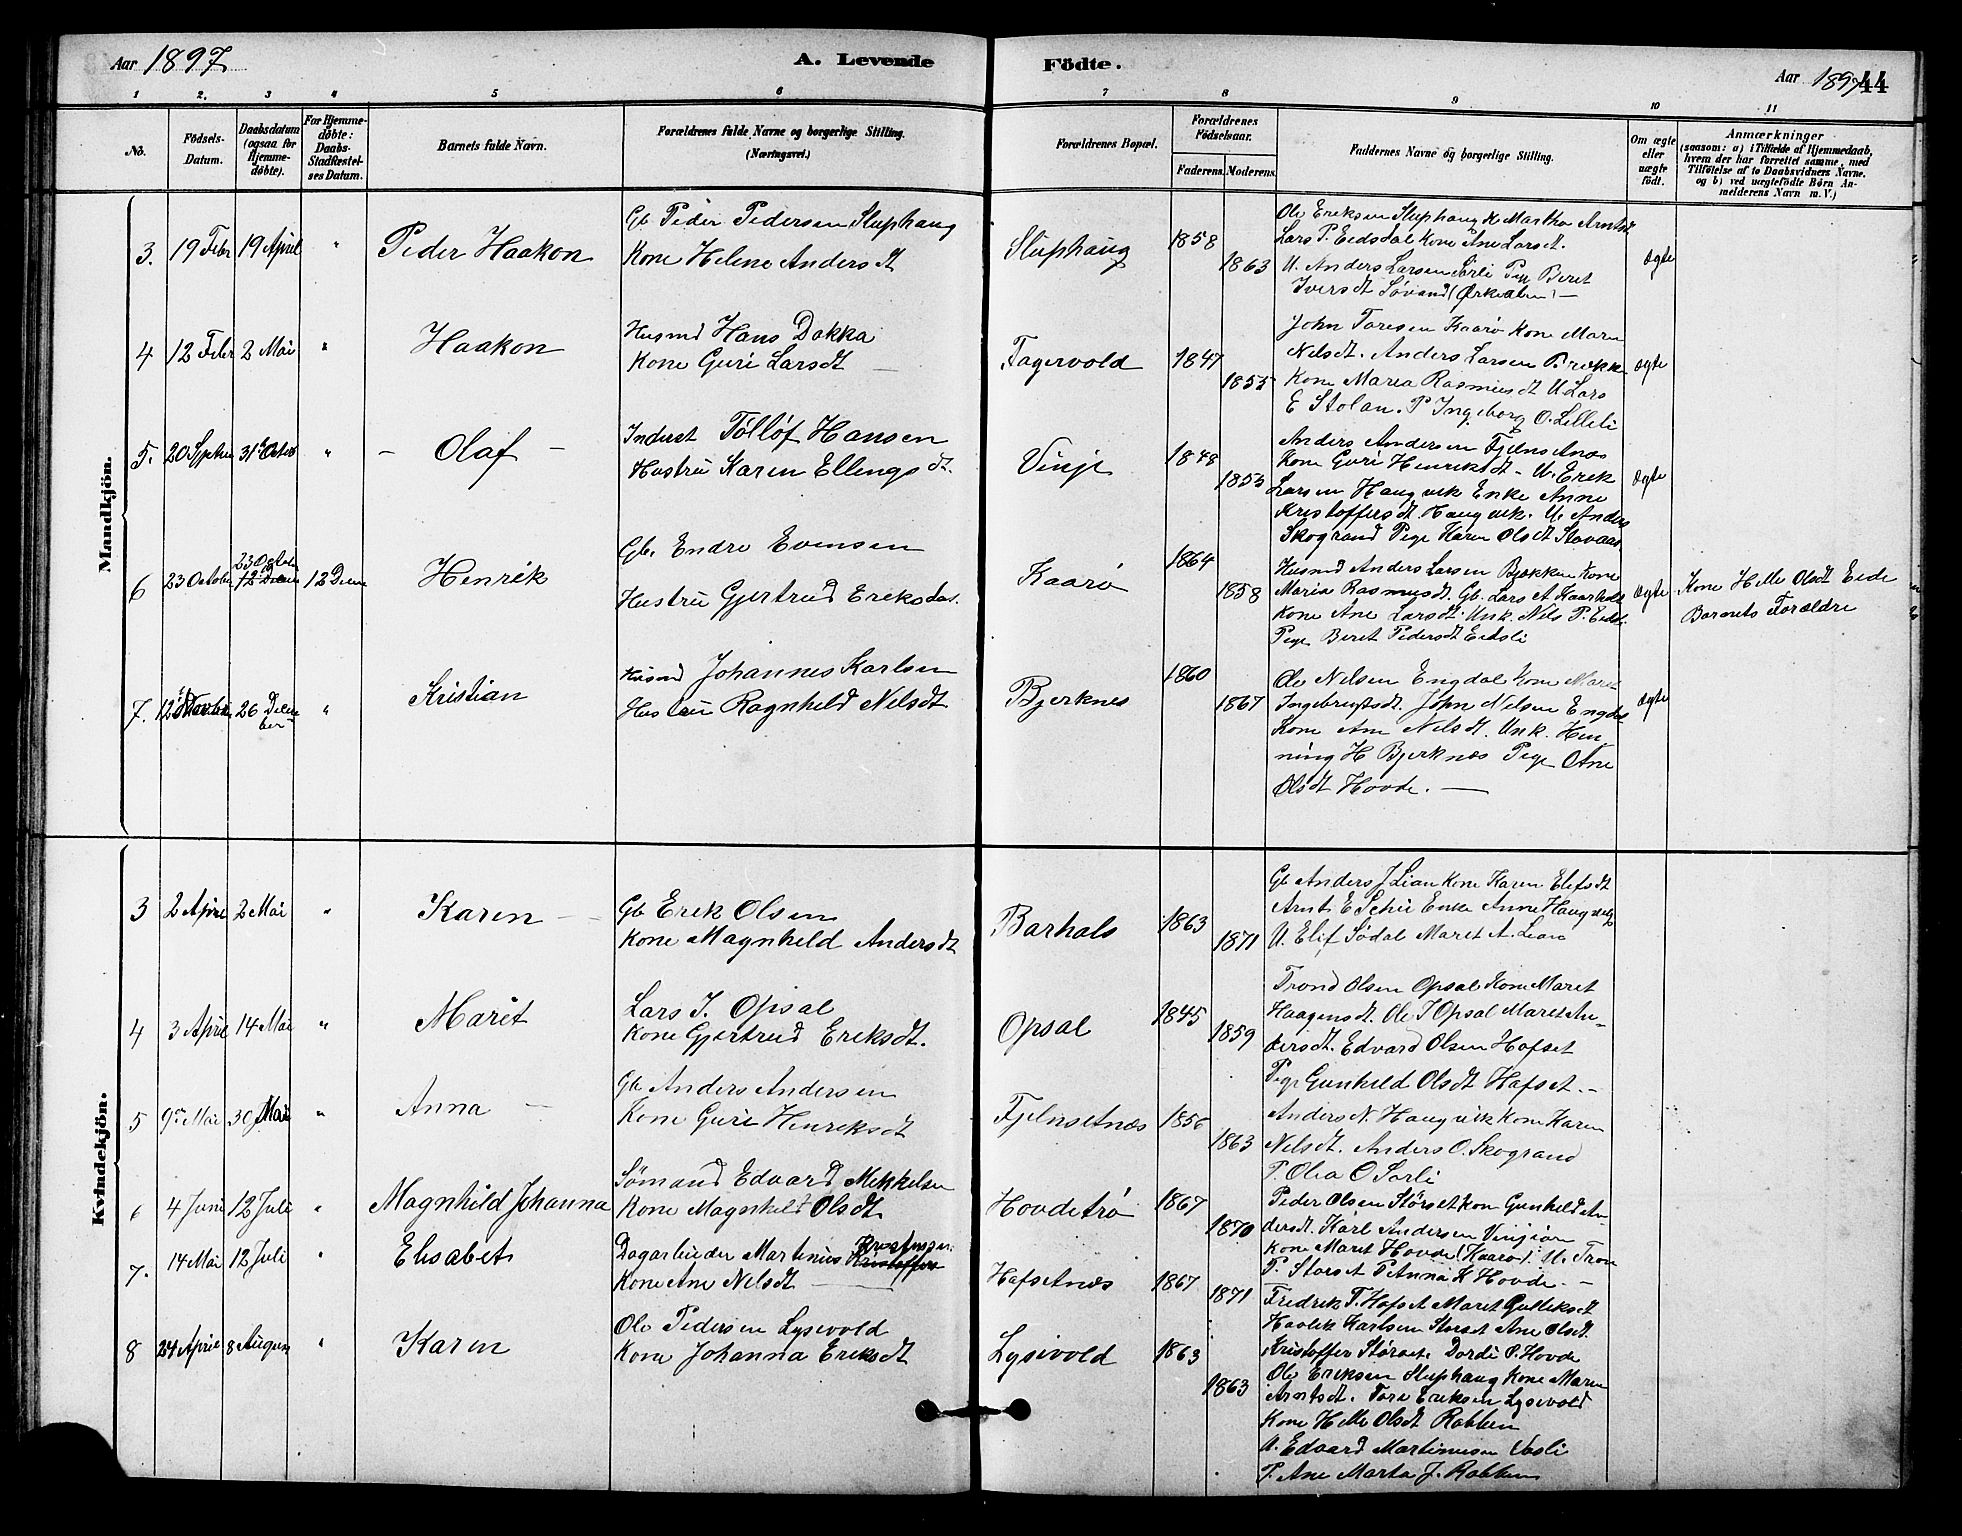 Aar 1897
A. Levende
Födte.
Aar 1897
44
1
2.
3
4
5
6
7
8
9
10
11
No.
Födsels-
Datum.
Daabsdatum
(ogsaa for
Hjemme-
döbte).
For Hjemme-
döbte:
Daabs-
Stadfæstel-
ses Datum.
Barnets fulde Navn.
Forældrenes fulde Navne og borgerlige Stilling.
(Næringsvei.)
Forældrenes Bopæl.
Forældrenes
Födselsaar.
Faderens.
Moderens.
Faddernes Navne og borgerlige Stilling.
Om ægte
eller
uægte
født.
Anmærkninger
(saasom: a) i Tilfælde af Hjemmedaab,
hvem der har forrettet samme, med
Tilföielse af to Daabsvidners Navne.
og b) ved uægtefödte Börn An-
melderens Navn m. V.)
Mandkjön.
3. 19 Febr 19 April " Peder Haakon
Gb. Peder Pedersen Sluphaug
Kone Helene Andersdt
Sluphaug 1858 1863
Ole Eriksen Sluphaug K Martha Arntsdt
Lars P. Eidsdal Kone Ane Larsdt.
U. Anders Larsen Sorli Pige Beret
Iversdt Søvand (Ørkedalen) —
Ægte
4 12 Febr 2 Mai " Haakon
Husmd Hans Dokka
Kone Guri Larsdt
Fagervold 1847 1855
John Toresen Kaarø Kone Maren
Nelsdt. Anders Larsen Brække
Kone Marea Rasmusdt U Lars
E Stolan. P Ingeborg O. Lilleli
Ægte
5. 20 31 " – Olaf –
Inderst Tølløf Hansen
Hustru Karen Ellingsdt.
Vinje 1848 1853
Anders Andersen Fjelnsetnæs
Kone Guri Henriksdt – U. Erek
Larsen Haugvik Enke Anne
Kristoffersdt Haugvik. U. Anders
Skogrand Pige Karen Olsdt Stovaas
Ægte
6 23 October 12 Decem Henrik
Gb. Endre Evensen
Hustru Gjertrud Ereksdat.
Kaarø 1864 1858
Husmd Anders Larsen Brækken Kone
Maria Rasmusdt. Gb. Lars A Kaarhols
Kone Ane Larsdt. Unk. Nels P. Eidsli
Pige Beret Pedersdt Eidsli
Ægte
Kone Helle Olsdt Eide
Barnets Forældre
7. 12 26 Decem
ber " Kristian
Husmd Johannes Karlsen
Hustru Ragnheld Nelsdt
Bjerknes 1860 1867
Ole Nelsen Engdal Kone Maret
Ingebregtsdt. John Nelsen Engdal
Kone Ane Nelsdt. Unk. Hen-
ning H Bjerknæs Pige Ane
Olsdt Hovde. —
Ægte
Kvindekjön.
3 2 April 2 Mai " Karen —
Gb Erek Olsen
Kone Magnheld Andersdt
Barhals 1863 1871
Gb Anders J Lian Kone Karen Elefsdt
Arnt E Enke Anne Haugvik
U. Elif Sødal Maret A. Lian
4 3 April 14 Mai " Marit
Lars I. Opsal
Kone Gjertrud Ereksdt.
Opsal 1845 1859
Trond Olsen Opsal Kone Maret
Haagensdt. Ole I Opsal Maret An-
dersdt. Edvard Olsen Hafset
Pige Gunheld Olsdt Hafset. –
5 9de Mai 30 Mai " Anna —
Gb Anders Andersen
Kone Guri Henreksdt
Fjelnsetnæs 1856 1863
Anders N. Haugvik Kone Karen
Nelsdt. Anders O. Skogrand
P. Olea O Sorli
6 4 Juni 12 Juli " Magnhild Johanna
Sømand Edvard Mekkelsen
Kone Magnheld Olsdt
Hovdetrø 1867 1870
Peder Olsen Størset Kone Gunheld An-
dersdt. Karl Andersen Vingian
Kone Maret Hovde (Kaarø). U. Tron
P. Størset P Anna K Hovde. –
7. 14 Mai 12 Juli " Elisabet
Dagarbeider Martinius Kristoffers
Kone Ane Nelsdt —
Hafsetnæs 1867 1871
Fredrik T. Hafset Maret Gulleksdt
Karlsen Størset Ane Olsdt.
Kristoffer Størset. Dordi P. Hovde
8 24 April 8 August " Karen
Ole Pedersen Lysivold
Kone Johanna Ereksdt
Lysivold 1863 1863
Ole Ereksen Sluphaug Kone Maren
Arntsdt. Tore Ereksen Lysivold
Kone Helle Olsdt Robken
U. Edvard Martinusen Vasli
P. Ane Marta J. Robken